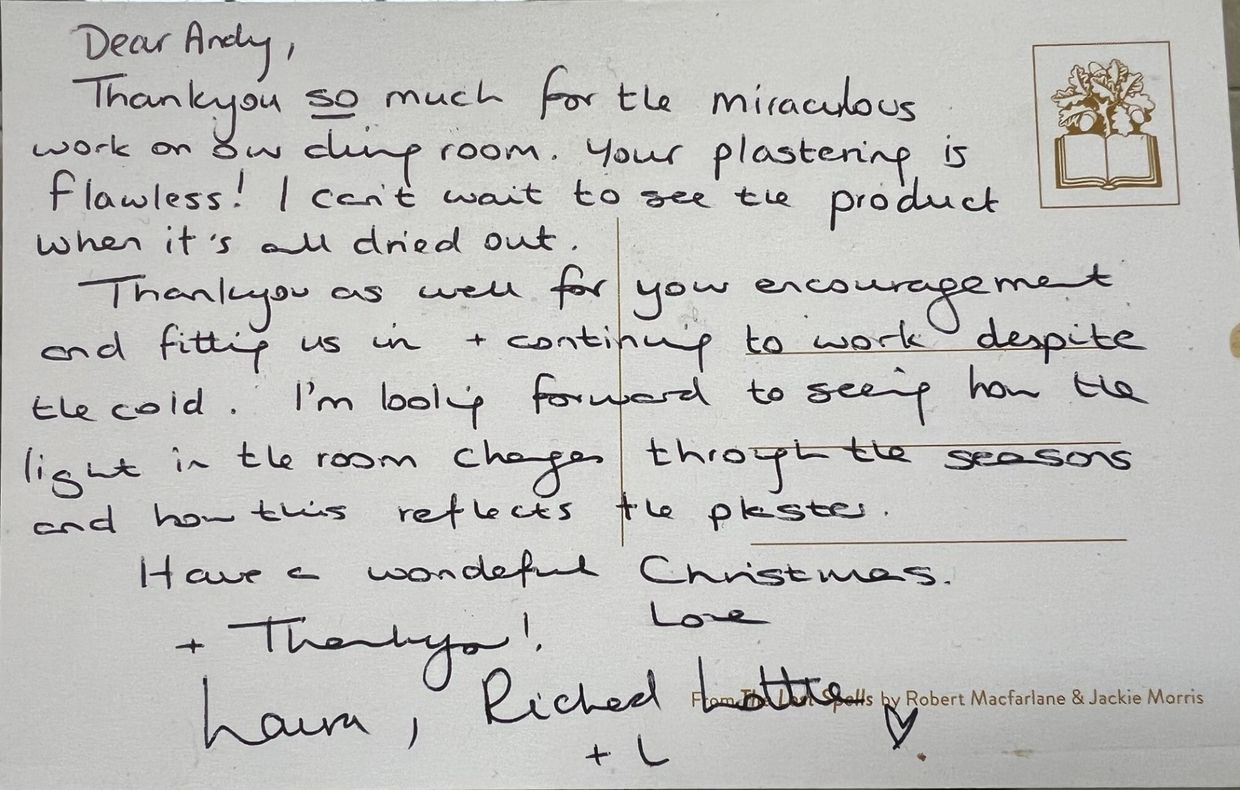 Dear Andy,
Thankyou so much for the miraculous
work on our dining room. Your plastering is
flawless! I can't wait to see the product
when it's all dried out.
Thankyou as well for your encouragement
and fitting us in + continuing to work despite
the cold. I'm looking forward to seeing how the
light in the room changes through the seasons
and how this reflects the plaster.
Have a wonderful Christmas.
+ Thankyou! Love
Laura, Richard Lottie
+ L
From The Lost Spells by Robert Macfarlane & Jackie Morris